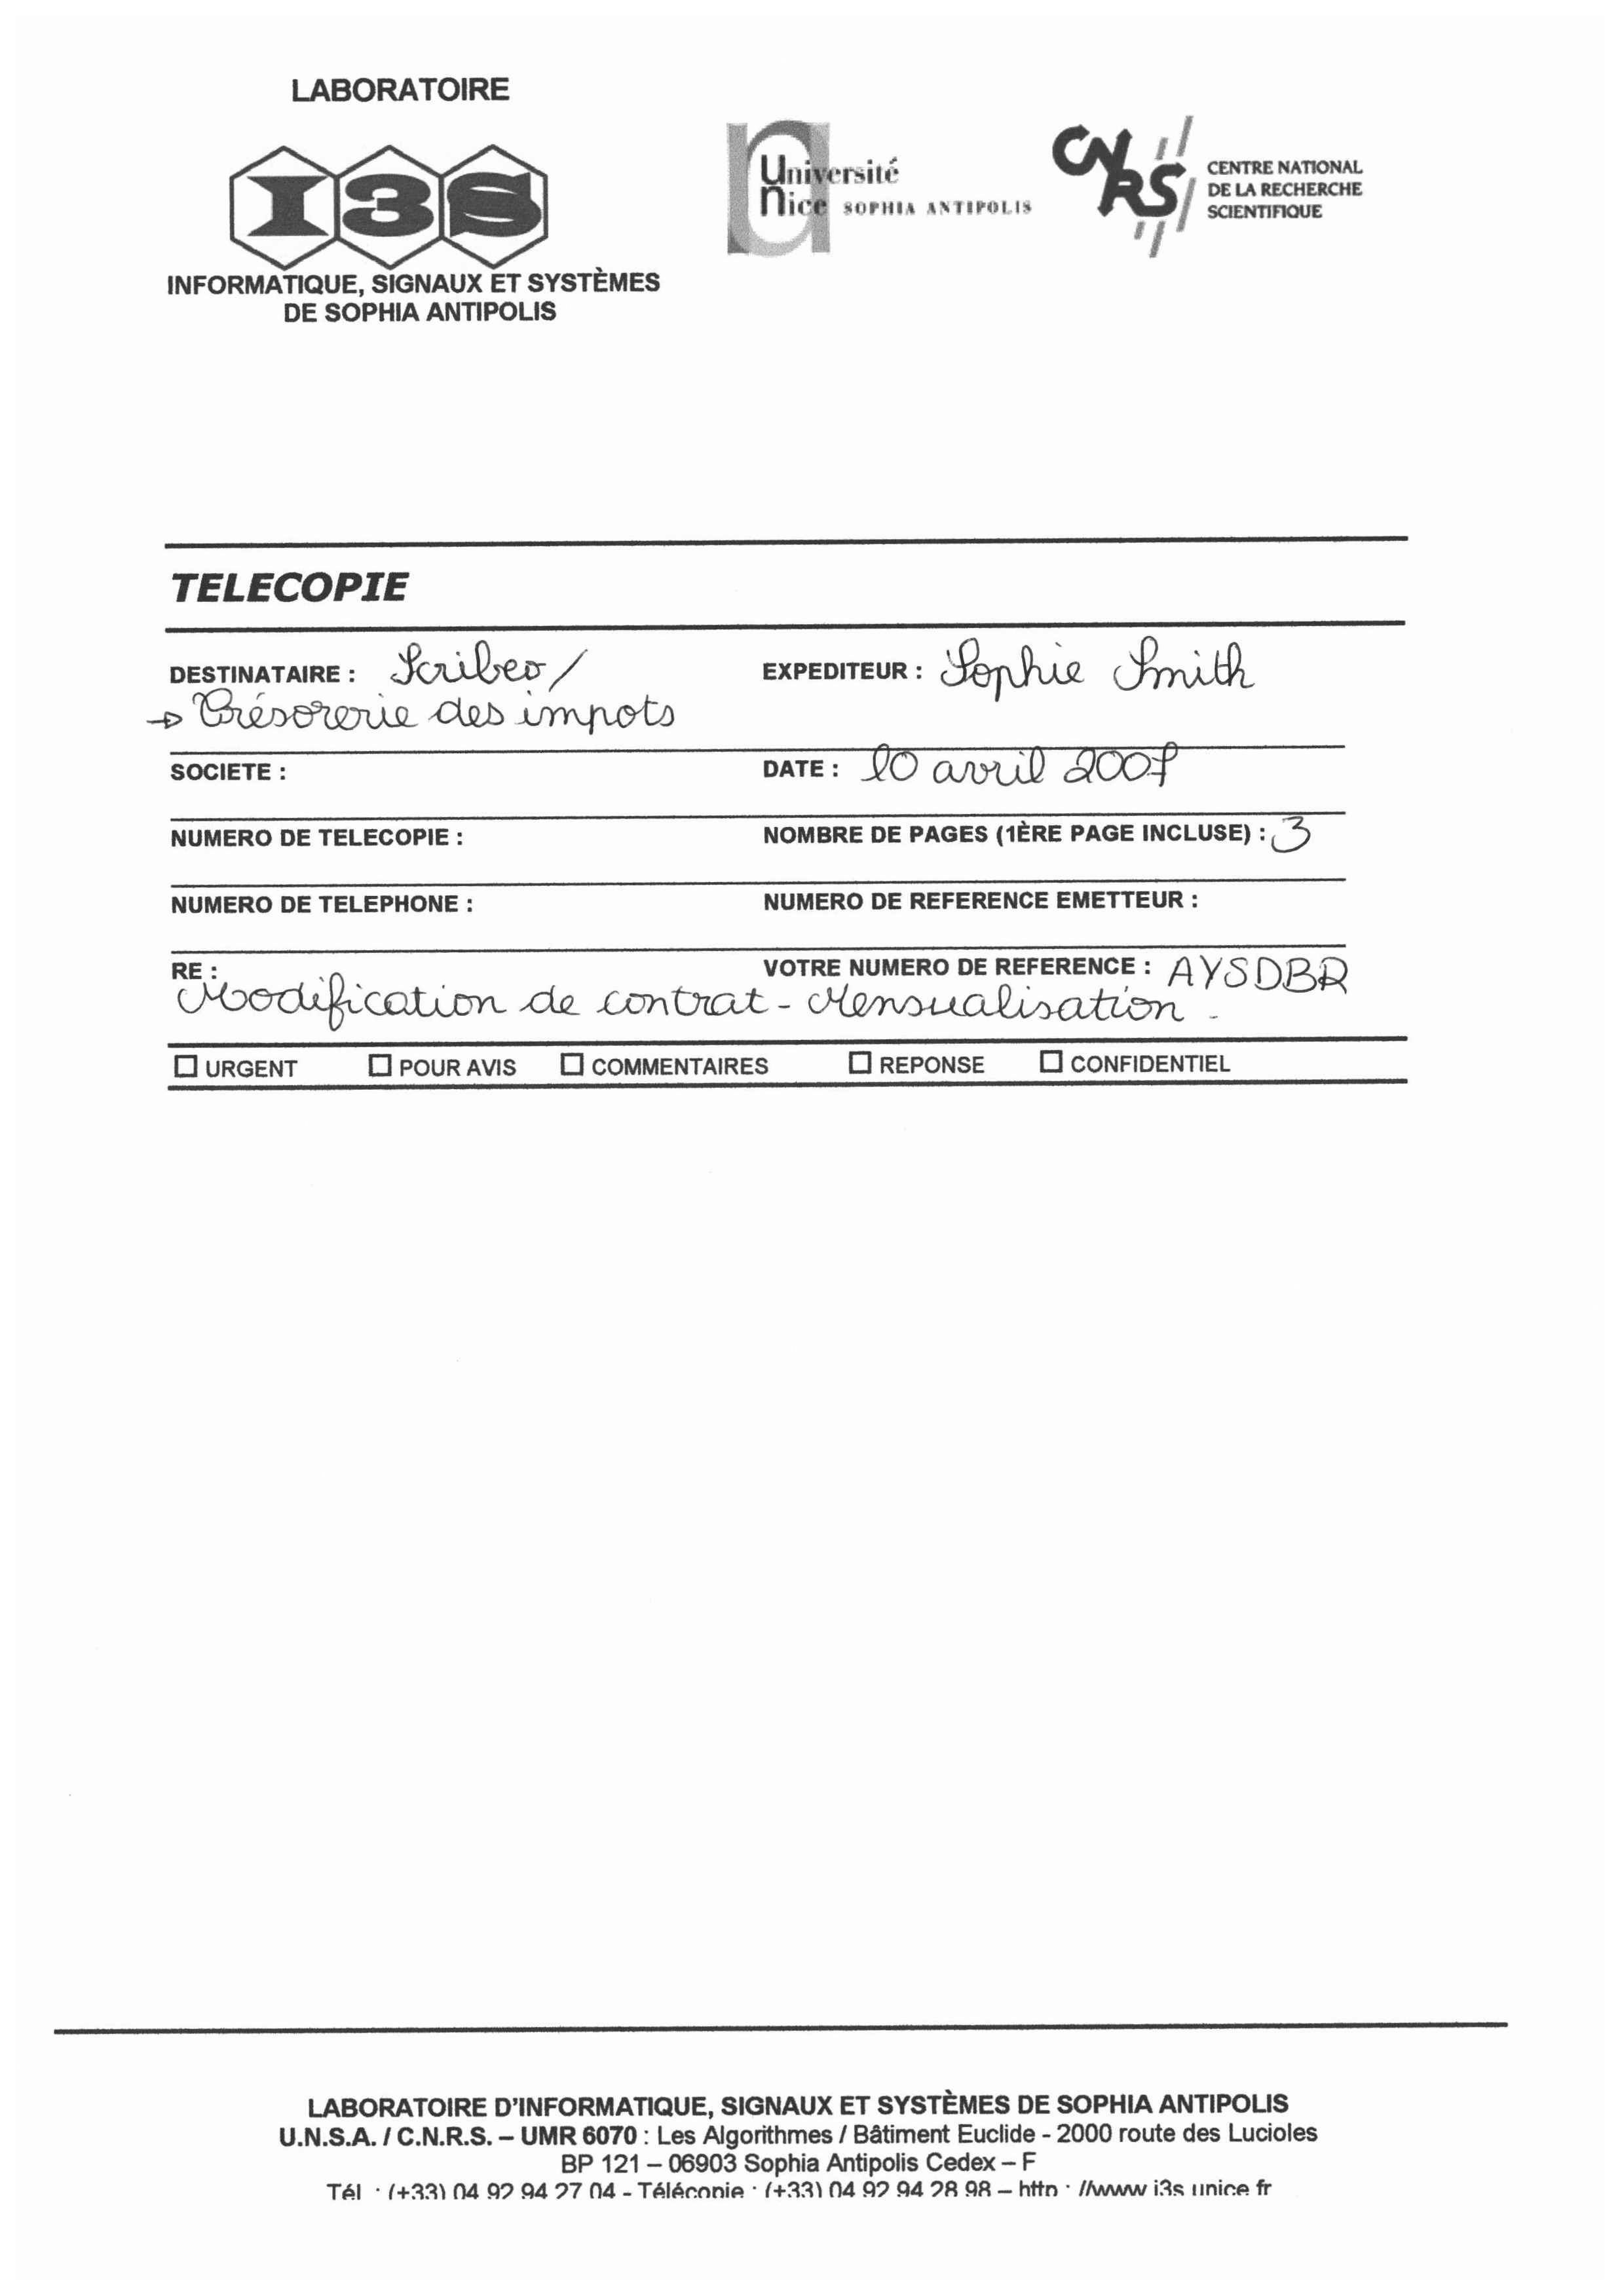 LABORATOIRE
I3S
INFORMATIQUE, SIGNAUX ET SYSTÈMES
DE SOPHIA ANTIPOLIS
Université
Nice SOPHIA ANTIPOLIS
CNRS
CENTRE NATIONAL
DE LA RECHERCHE
SCIENTIFIQUE
TELECOPIE
DESTINATAIRE : Scribeo/ EXPEDITEUR : Sophie Smith
→ Trésorerie des impots
SOCIETE : DATE : 10 avril 2007
NUMERO DE TELECOPIE : NOMBRE DE PAGES (1ÈRE PAGE INCLUSE) : 3
NUMERO DE TELEPHONE : NUMERO DE REFERENCE EMETTEUR :
RE : VOTRE NUMERO DE REFERENCE : AYSDBR
Modification de contrat - Mensualisation -
URGENT POUR AVIS COMMENTAIRES REPONSE CONFIDENTIEL
LABORATOIRE D'INFORMATIQUE, SIGNAUX ET SYSTÈMES DE SOPHIA ANTIPOLIS
U.N.S.A. / C.N.R.S. – UMR 6070 : Les Algorithmes / Bâtiment Euclide - 2000 route des Lucioles
BP 121 – 06903 Sophia Antipolis Cedex – F
Tél : (+33) 04 92 94 27 04 - Télécopie : (+33) 04 92 94 28 98 – http : //www i3s unice fr